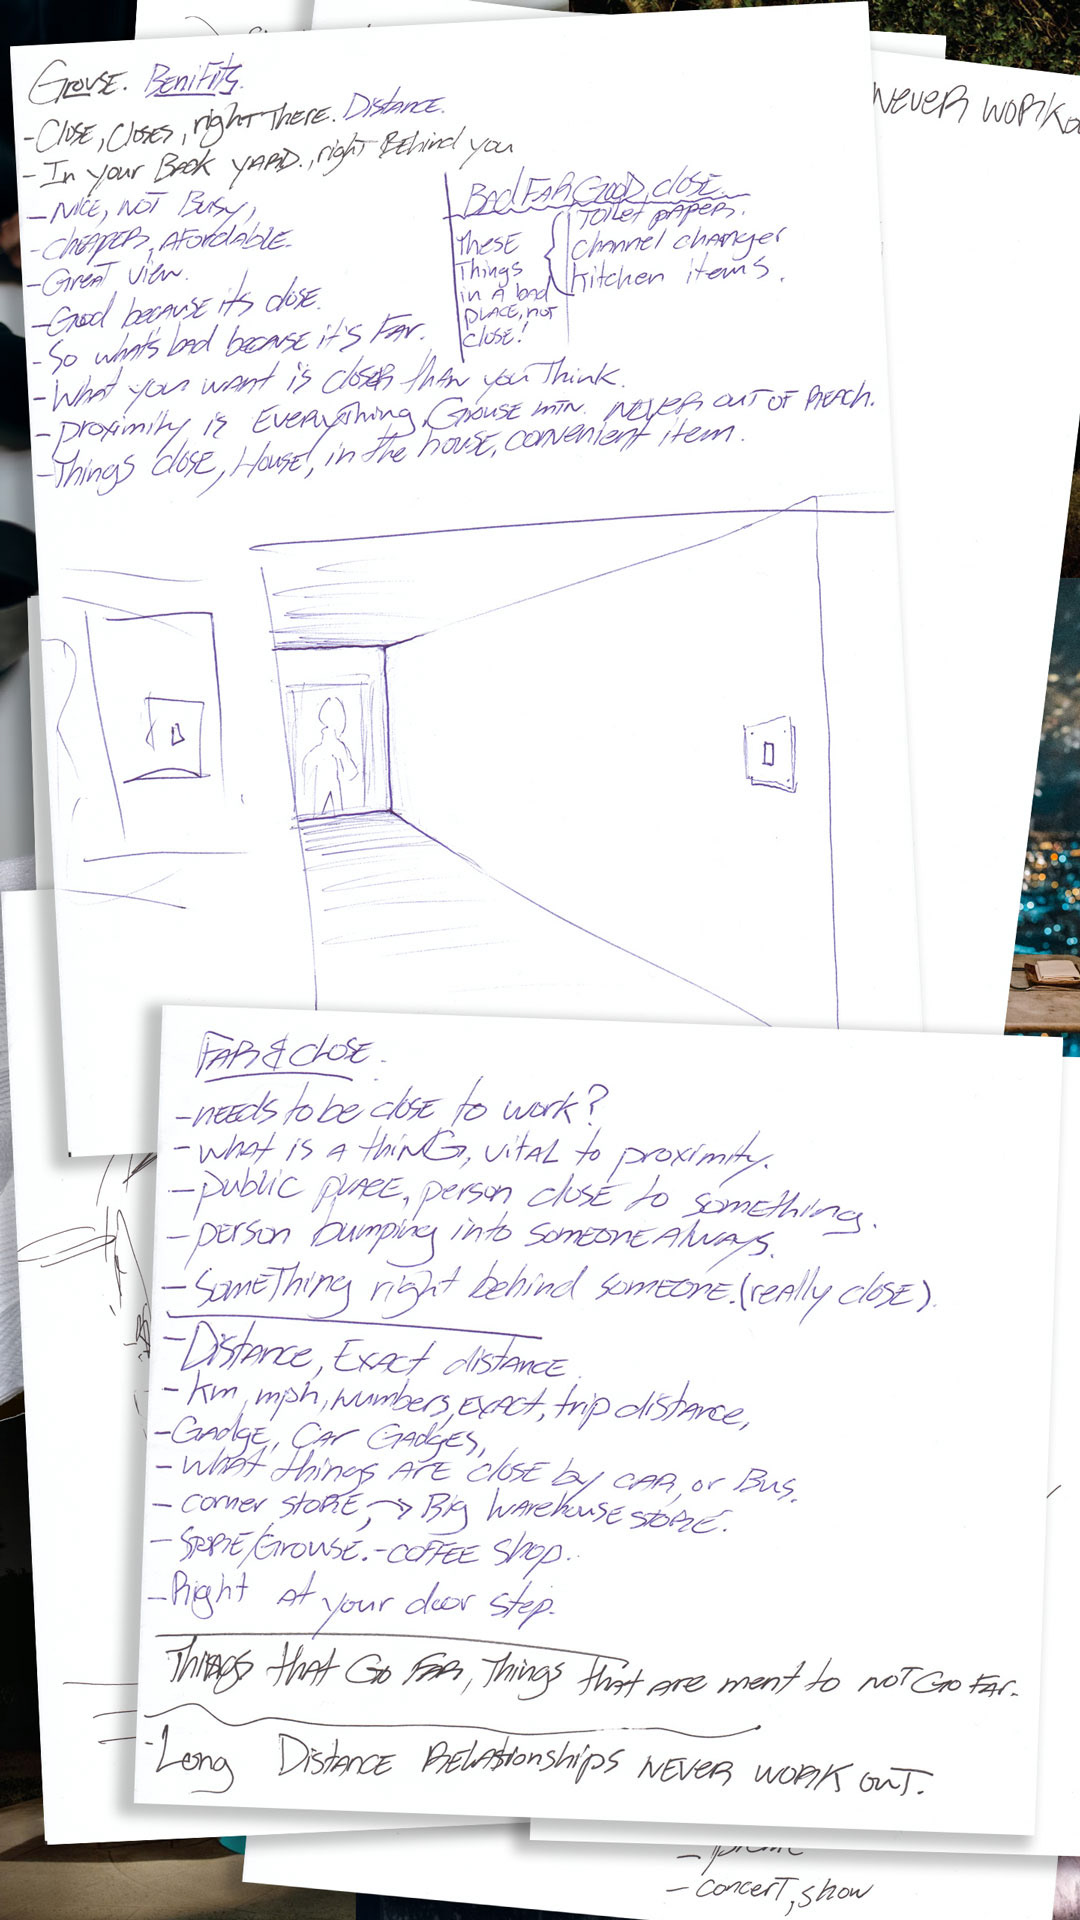 Grouse. Benifits.
- Close, closes, right there. Distance.
- In your Back yard, right Behind you
- Nice, not Busy,
- cheaper, Afordable.
- Great view.
- Good because its close.
- So what's bad because it's Far.
- What you want is closer than you Think.
- proximity is Everything, Grouse mtn. never out of reach.
- Things close, House, in the house, convenient item.
Bad FAR, Good, close.
These Things in a bad place, not close!
Toilet papers.
channel changer
kitchen items.
never work
Far & close.
- needs to be close to work?
- what is a thing, vital to proximity.
- public place, person close to something.
- person bumping into someone always.
- Something right behind someone. (really close).
- Distance, Exact distance
- km, mph, numbers, exact, trip distance,
- Gadge, Car Gadges,
- what things are close by car, or Bus.
- corner store, → Big warehouse store.
- Store/Grouse. - coffee shop..
- Right at your door step.
Things that Go Far, Things that are ment to not Go Far.
- Long Distance Relationships never work out.
- concert, show